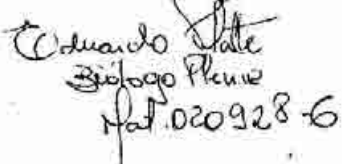 Eduardo
Biólogo Pleno
Mat. 020928-6